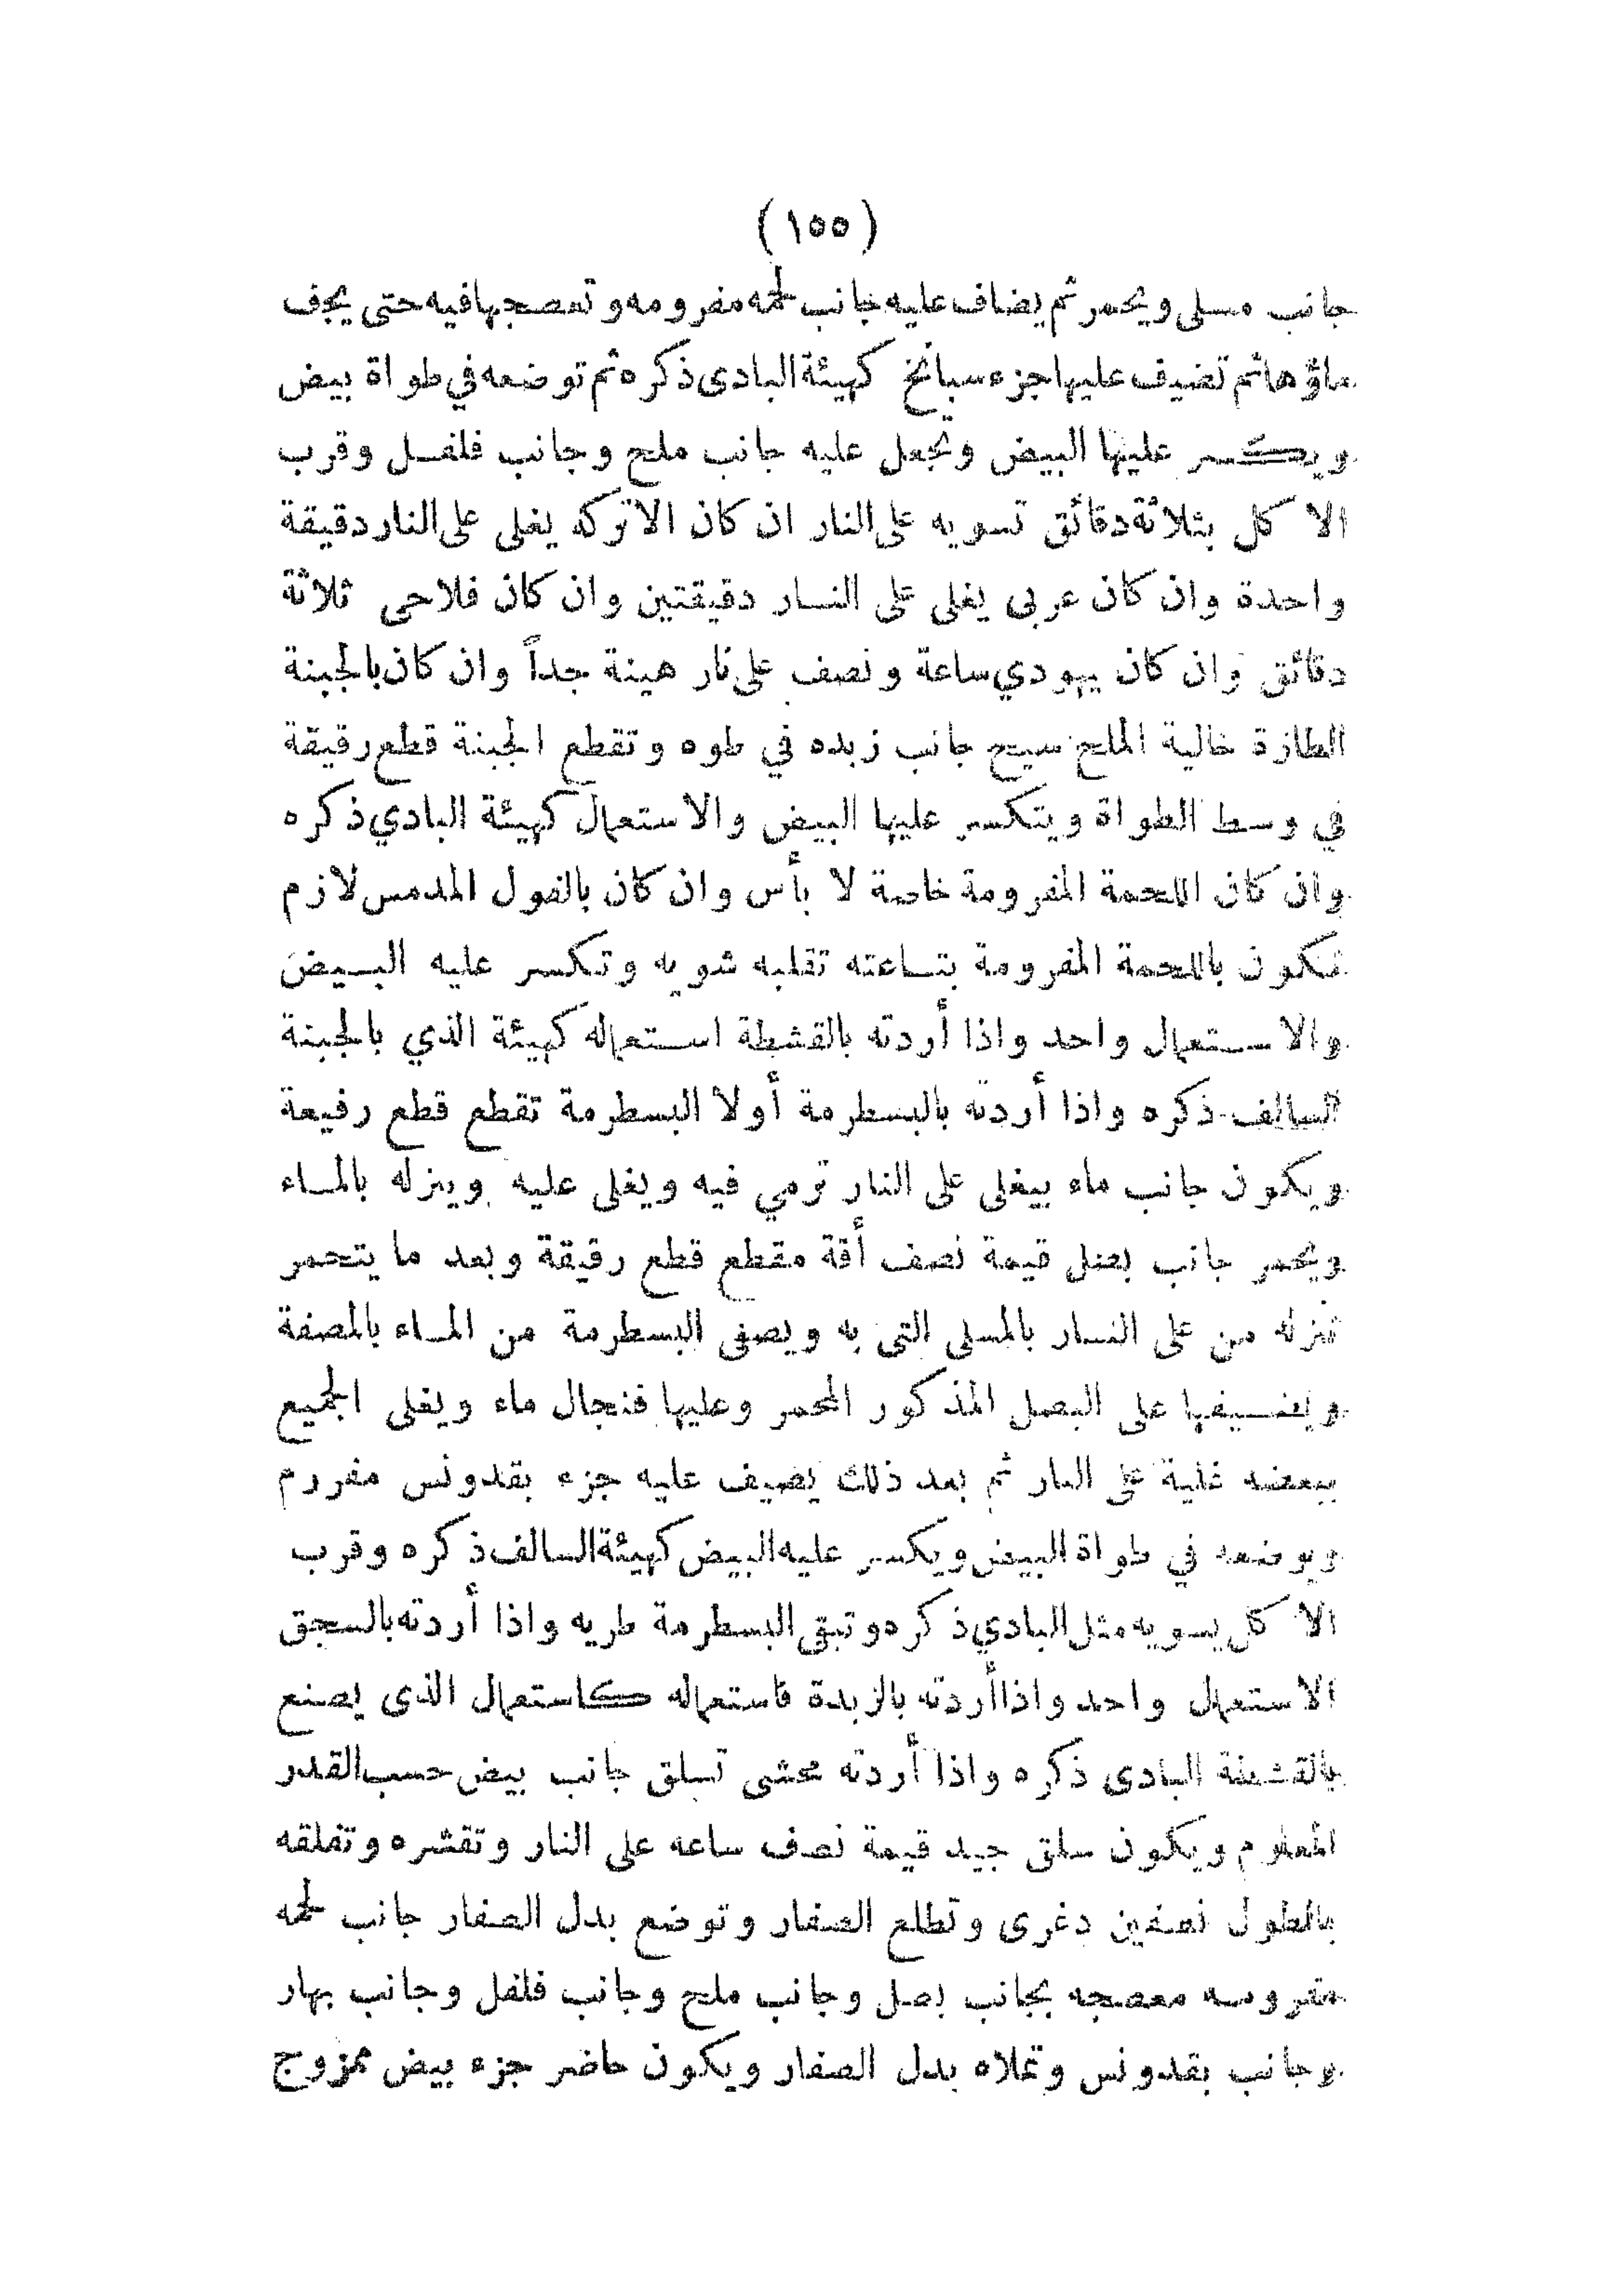 (١٥٥)
جانب مسلى ويحمر ثم يضاف عليه جانب لحمه مفرومه وتعصجها فيه حتى يجف
ماؤها ثم تضيف عليها جزء سبانخ كهيئة البادى ذكره ثم توضعه في طواة بيض
ويكسر عليها البيض وتجعل عليه جانب ملح وجانب فلفل وقرب
الاكل بثلاثة دقائق تسويه على النار ان كان الاتركه يغلى على النار دقيقة
واحدة وان كان عربى يغلى على النار دقيقتين وان كان فلاحى ثلاثة
دقائق وان كان يهودي ساعة ونصف على نار هينة جداً وان كان بالجبنة
الطازة خالية الملح سيح جانب زبده في طوه وتقطع الجبنة قطع رقيقة
في وسط الطواة ويتكسر عليها البيض والاستعمال كهيئة البادي ذكره
وان كان اللحمة المفرومة خاصة لا بأس وان كان بالفول المدمس لازم
تكون باللحمة المفرومة بتاعته تقلبه شويه وتكسر عليه البيض
والاستعمال واحد واذا أردته بالقشطة استعماله كهيئة الذي بالجبنة
السالف ذكره واذا أردته بالبسطرمة أولا البسطرمة تقطع قطع رفيعة
ويكون جانب ماء بيغلى على النار ترمي فيه ويغلى عليه وينزله بالماء
ويحمر جانب بصل قيمة نصف أقة مقطع قطع رقيقة وبعد ما يتحمر
تنزله من على النار بالمسلى التى به ويصفى البسطرمة من الماء بالمصفة
ويضيفها على البصل المذكور المحمر وعليها فنجال ماء ويغلى الجميع
ببعضه غلية على النار ثم بعد ذلك يضيف عليه جزء بقدونس مفروم
ويوضعه في طواة البيض ويكسر عليه البيض كهيئة السالف ذكره وقرب
الاكل يسويه مثل البادي ذكره وتبقى البسطرمة طريه واذا أردته بالسجق
الاستعمال واحد واذا أردته بالزبدة فاستعماله كاستعمال الذى يصنع
بالقشطة البادى ذكره واذا أردته محشى تسلق جانب بيض حسب القدر
المعلوم ويكون سلق جيد قيمة نصف ساعه على النار وتقشره وتفلقه
بالطول نصفين دغرى وتطلع الصفار وتوضع بدل الصفار جانب لحمه
مفرومه معصجه بجانب بصل وجانب ملح وجانب فلفل وجانب بهار
وجانب بقدونس وتملاه بدل الصفار ويكون حاضر جزء بيض ممزوج